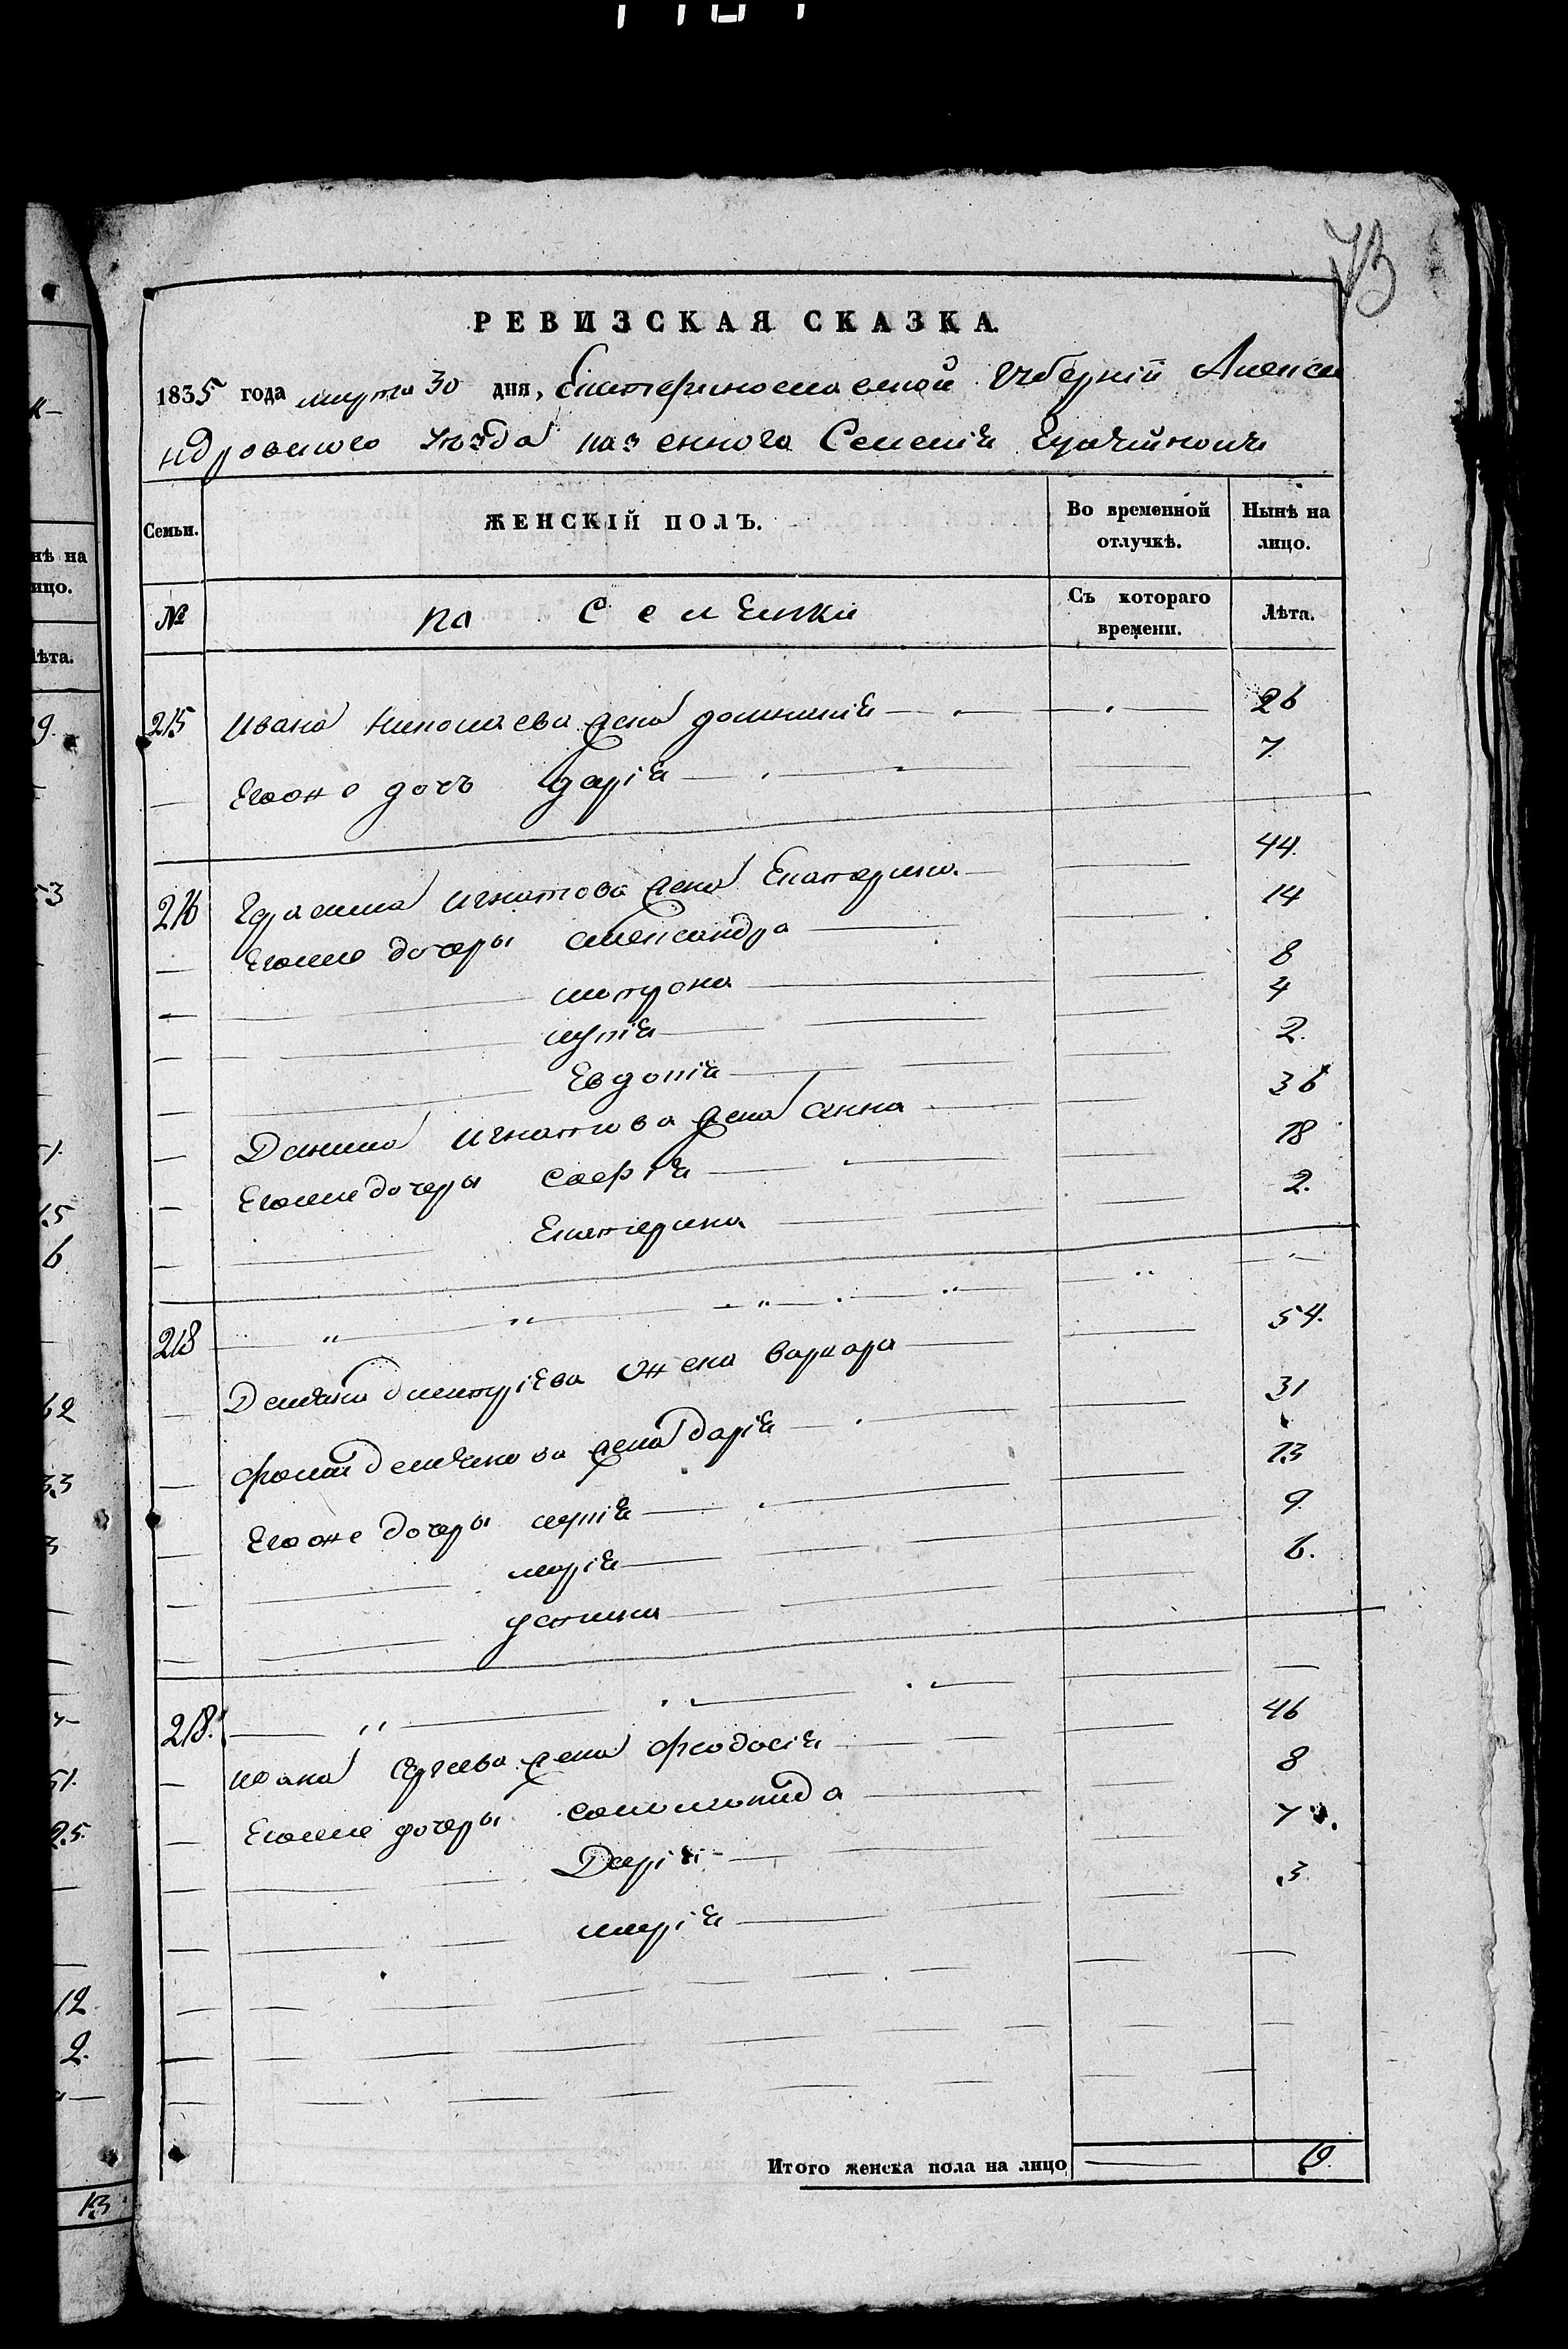 73
РЕВИЗСКАЯ СКАЗКА.
1835 года марта 30 дня, Екатеринославской Губерніи Алекса
ндровского уѣзда казенного Селенія
Семьи. ЖЕНСКІЙ ПОЛЪ. Во временной отлучкѣ. Нынѣ на лицо.
№ Съ котораго времени. Лѣта.
215 Ивана Николаева жена домникія 26
Егоже дочь дарія 7.
216 Герасима игнатова жена Екатерина 44.
Егоже дочеры александра 14
матрона 8
марія 4
Евдокія 2.
Данила игнатова жена анна 36
Егоже дочеры софія 18
Екатерина 2.
218
Демяна дмитріева жена варвара 54.
фомы демянова жена дарія 31
Егоже дочеры марія 13
марія 9
устина 6.
218.
ивана сергева жена феодосія 46
Егоже дочеры соломонида 8
Дарія 7.
марія 3
Итого женска пола на лицо 19.
нѣ на
ицо.
ѣта.
9.
53
1.
15
6
62
33
3
51.
25.
12
2.
13